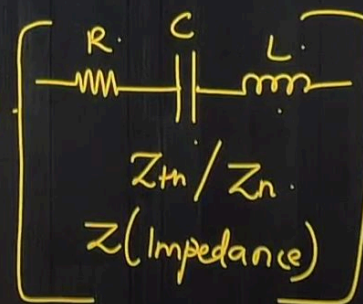 R. C L.
Zth / Zn.
Z (Impedance)